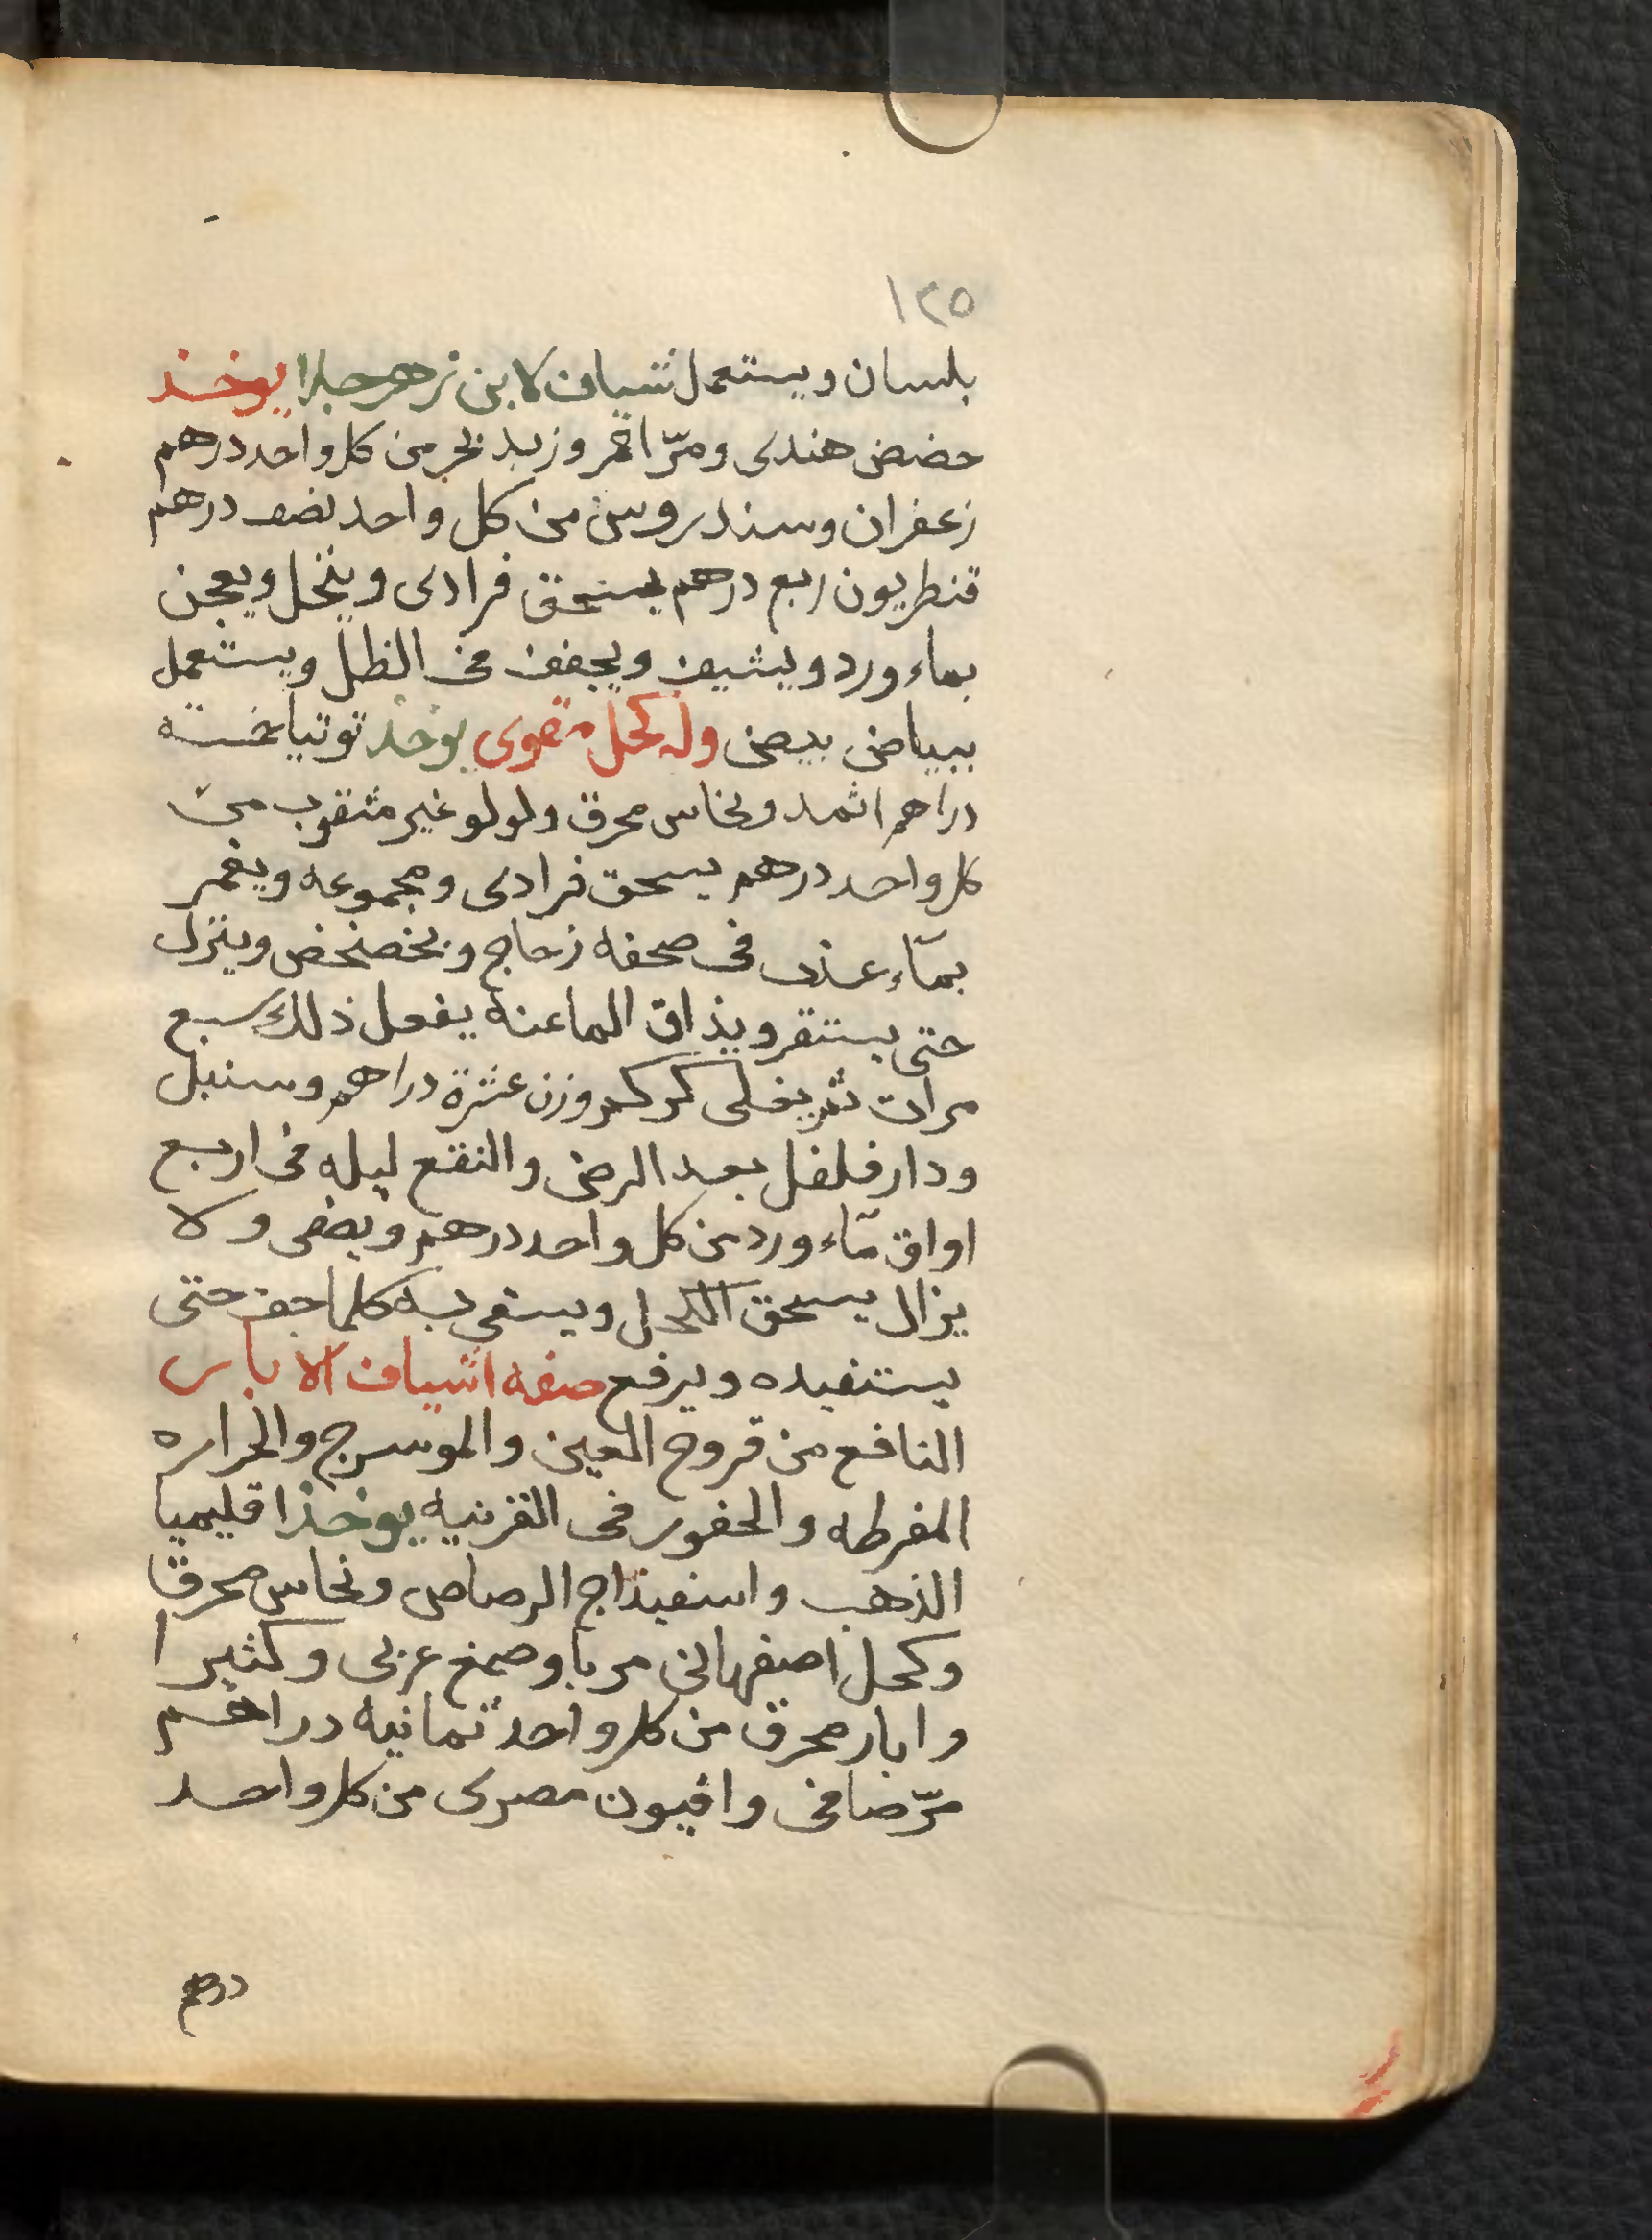 ١٢٥
بلسان ويستعمل شياف لابن زهر جلا يوخذ
حضض هندى ومرّ احمر وزبد بحر من كل واحد درهم
زعفران وسندروس من كل واحد نصف درهم
قنطريون ربع درهم يسحق فرادى وينخل ويعجن
بماء ورد ويشيف ويجفف فى الظل ويستعمل
ببياض بيض وله كحل مقوى يوخذ توتيا خمسة
دراهم اثمد ونحاس محرق ولولو غير مثقوب من
كل واحد درهم يسحق فرادى ومجموعه ويغمر
بمآء عذب فى صحفه زجاج ويخضخض وينزل
حتى يستقر ويذاق الما عنه يفعل ذلك سبع
مرات ثم يغلى كركم وزن عشرة دراهم وسنبل
ودار فلفل بعد الرض والنقع ليله فى اربع
اواق مآء ورد من كل واحد درهم ويصفى ولا
يزال يسحق الكحل ويسقى به كلما جف حتى
يستنفيده ويرفع صفة اشياف الاباس
النافع من قروح العين والموسرج والحراره
المفرطه والحفور فى القرنيه يوخذ اقليميا
الذهب واسفيذاج الرصاص ونحاس محرق
وكحل اصفهانى مربا وصمغ عربى وكثيرا
وابار محرق من كل واحد ثمانيه دراهم
مرّ صافى وافيون مصرى من كل واحد
درهم